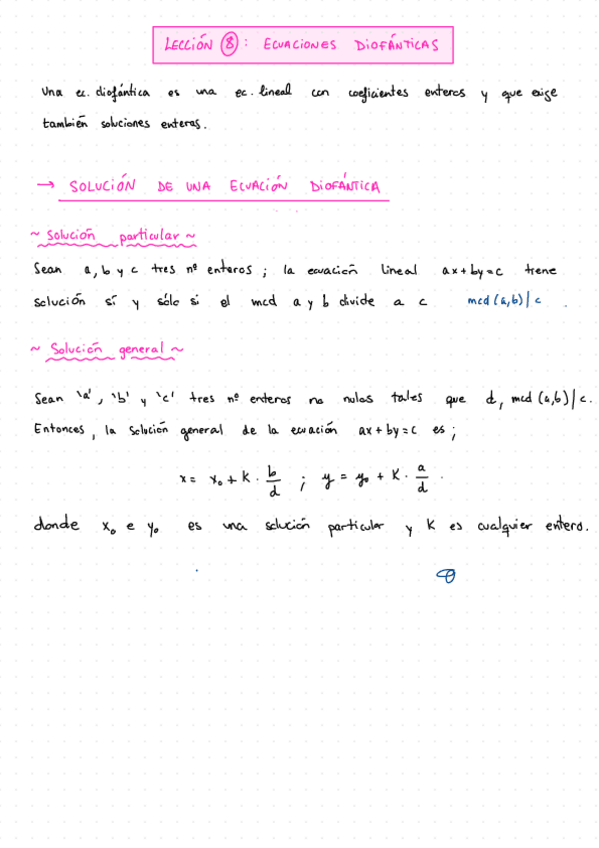 LECCIÓN 8: ECUACIONES DIOFÁNTICAS
Una ec. diofántica es una ec. lineal con coeficientes enteros y que exige
también soluciones enteras.
→ SOLUCIÓN DE UNA ECUACIÓN DIOFÁNTICA
~ Solución particular ~
Sean a, b y c tres nº enteros ; la ecuación lineal ax + by = c tiene
solución sí y sólo si el mcd a y b divide a c mcd (a,b) | c .
~ Solución general ~
Sean 'a', 'b' y 'c' tres nº enteros no nulos tales que d, mcd (a,b) | c.
Entonces, la solución general de la ecuación ax + by = c es ;
x = x₀ + K · b/d ; y = y₀ + K · a/d .
donde x₀ e y₀ es una solución particular y K es cualquier entero.